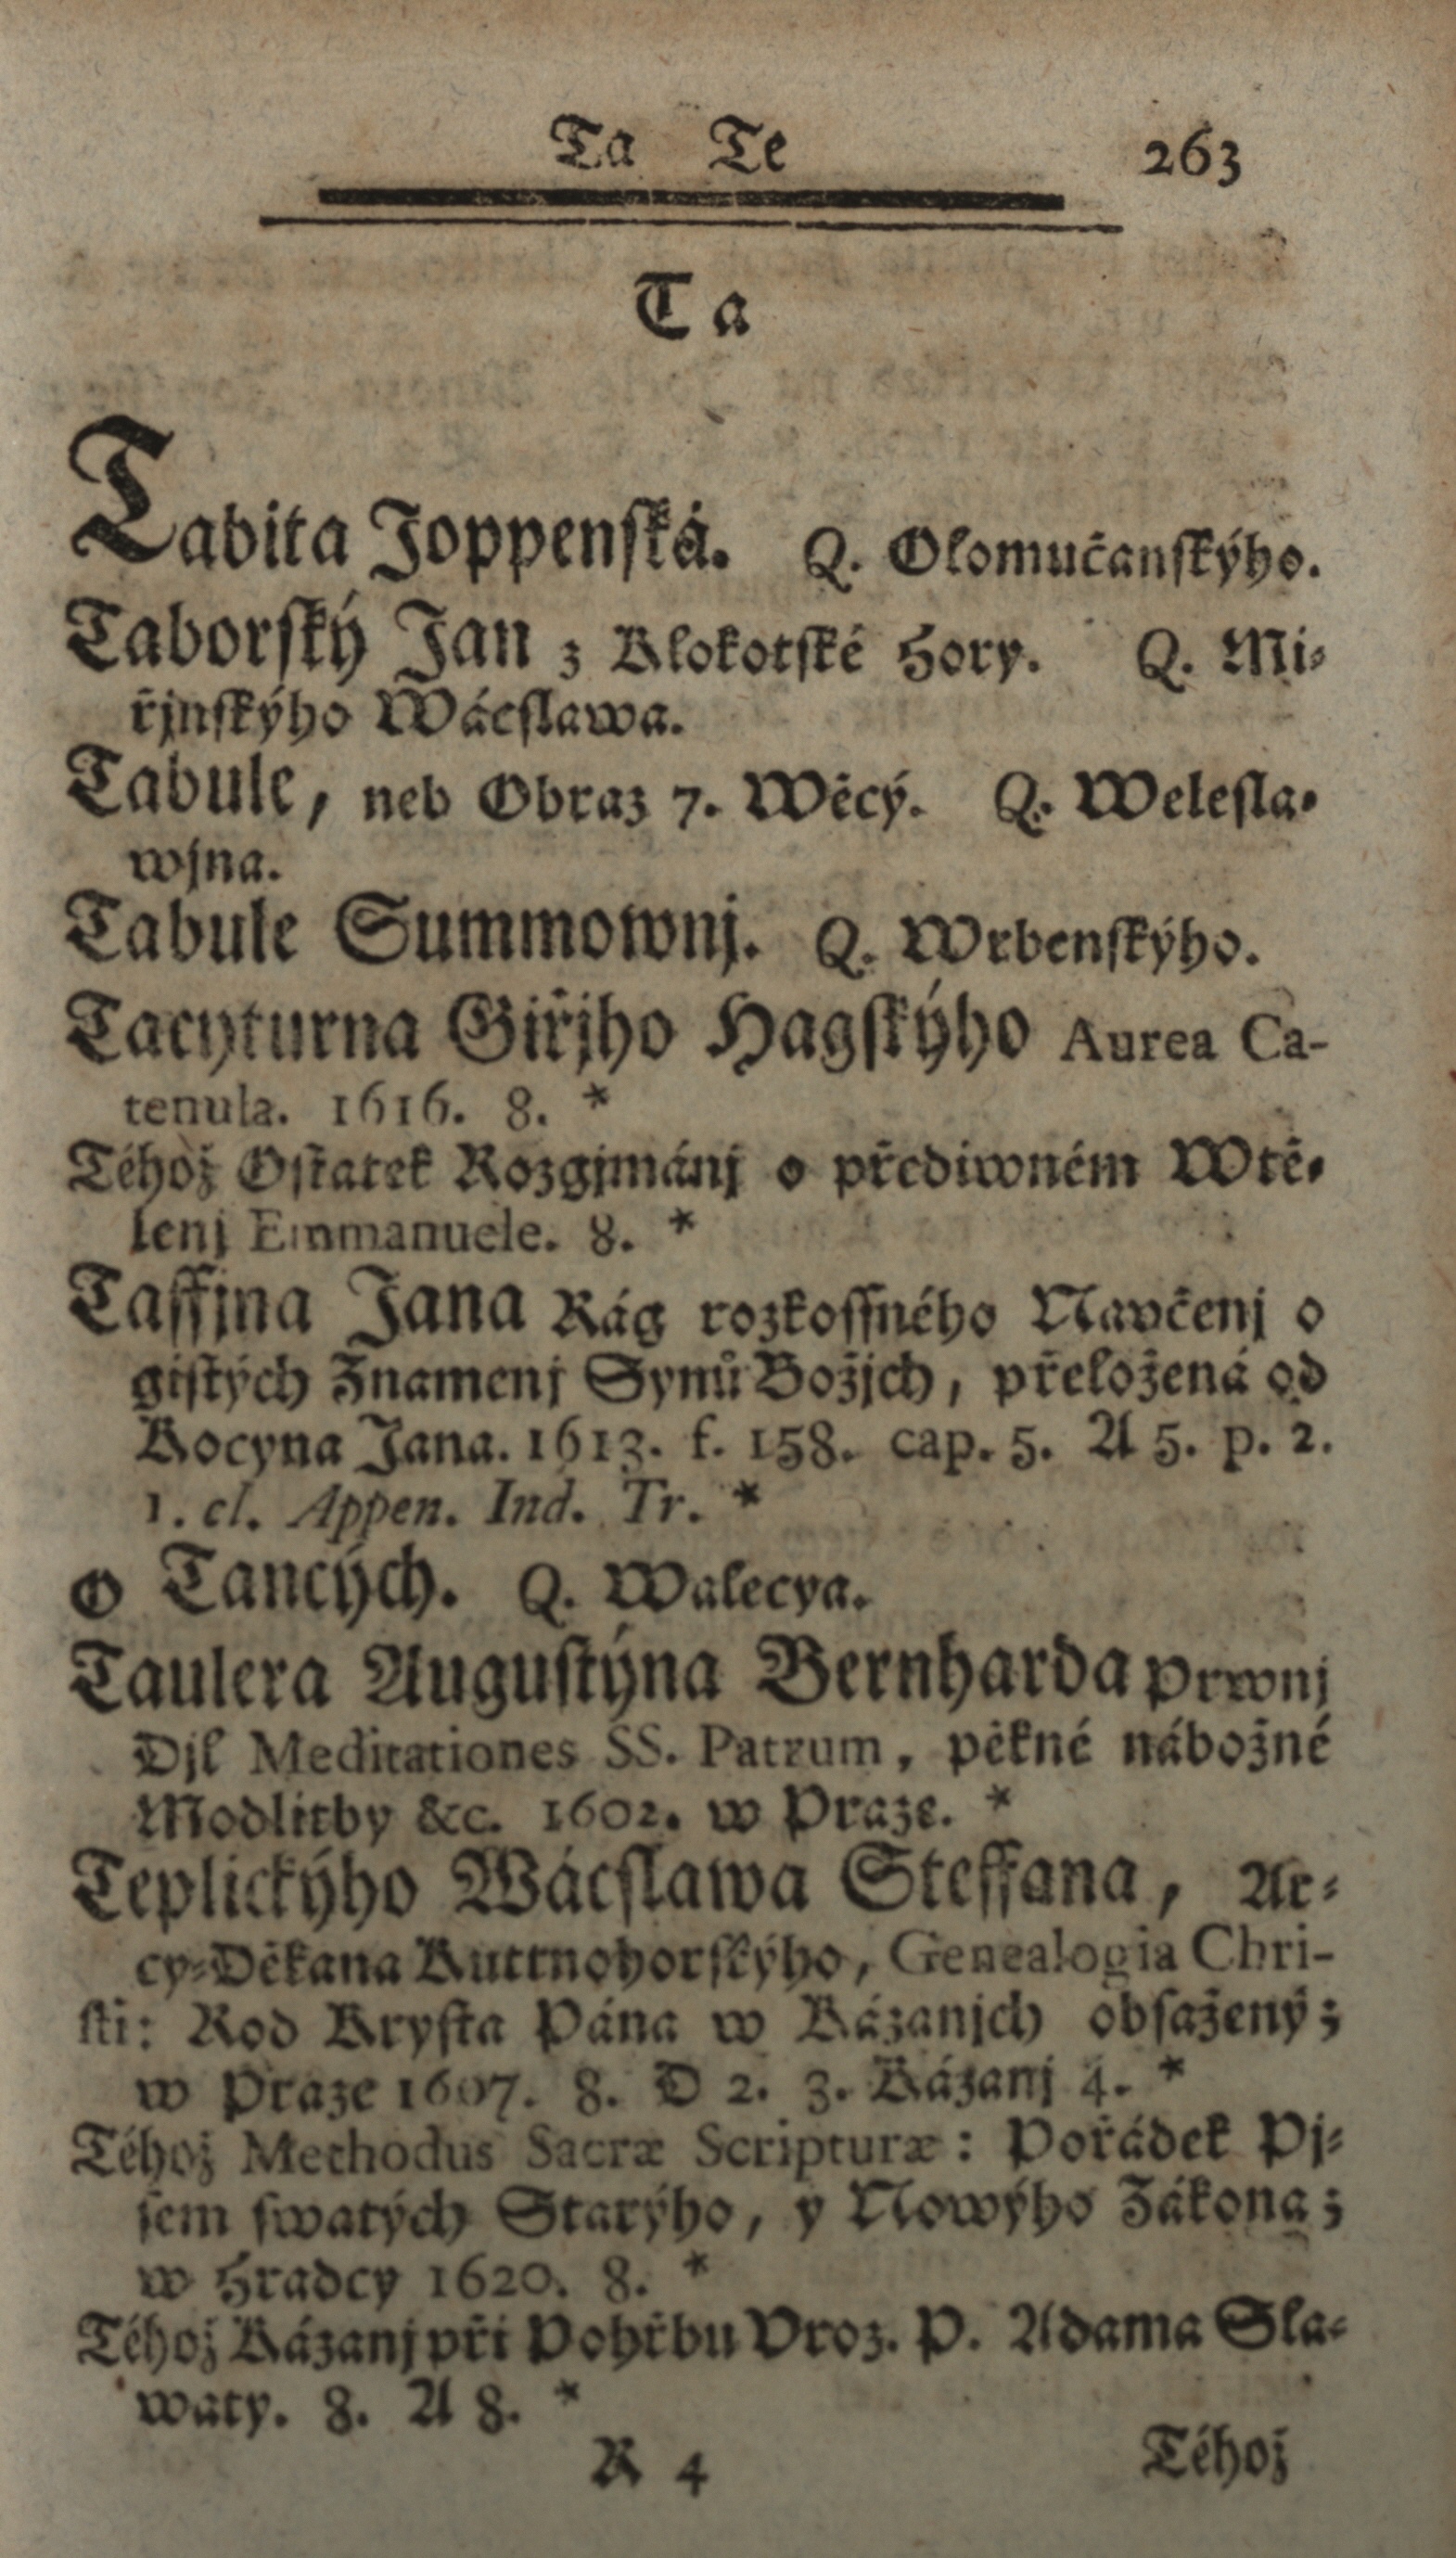 Ta Te 263
Ta
Tabita Joppenſká. Q. Olomučanſkýho.
Taborſký Jan z Klokotſké Hory. Q. Mi⸗
řjnſkýho Wácſlawa.
Tabule, neb Obraz 7. Wěcý. Q. Weleſla⸗
wjna.
Tabule Summownj. Q. Wrbenſkýho.
Tacyturna Giřjho Hagſkýho Aurea Ca-
tenula. 1616. 8. *
Téhož Oſtatek Rozgjmánj o přediwném Wtě⸗
lenj Emmanuele. 8. *
Taffjna Jana Rág rozkoſſného Navčenj o
giſtých Znamenj Synů Božjch, přeložená od
Kocyna Jana. 1613. f. 158. cap. 5. A 5. p. 2.
1. cl. Appen. Ind. Tr. *
O Tancých. Q. Walecya.
Taulera Auguſtýna Bernharda Prwnj
Djl Meditationes SS. Patrum, pěkné nábožné
Modlitby &c. 1602. w Praze. *
Teplickýho Wácſlawa Steffana, Ar⸗
cy⸗Děkana Kuttnohorſkýho, Genealogia Chri-
ſti: Rod Kryſta Pána w Kázanjch obſažený;
w Praze 1607. 8. D 2. 3. Kázanj 4. *
Téhož Methodus Sacræ Scripturæ: Pořádek Pj⸗
ſem ſwatých Starýho, y Nowýho Zákona;
w Hradcy 1620. 8. *
Téhož Kázanj při Pohřbu Vroz. P. Adama Sla⸗
waty. 8. A 8. *
R 4 Téhož